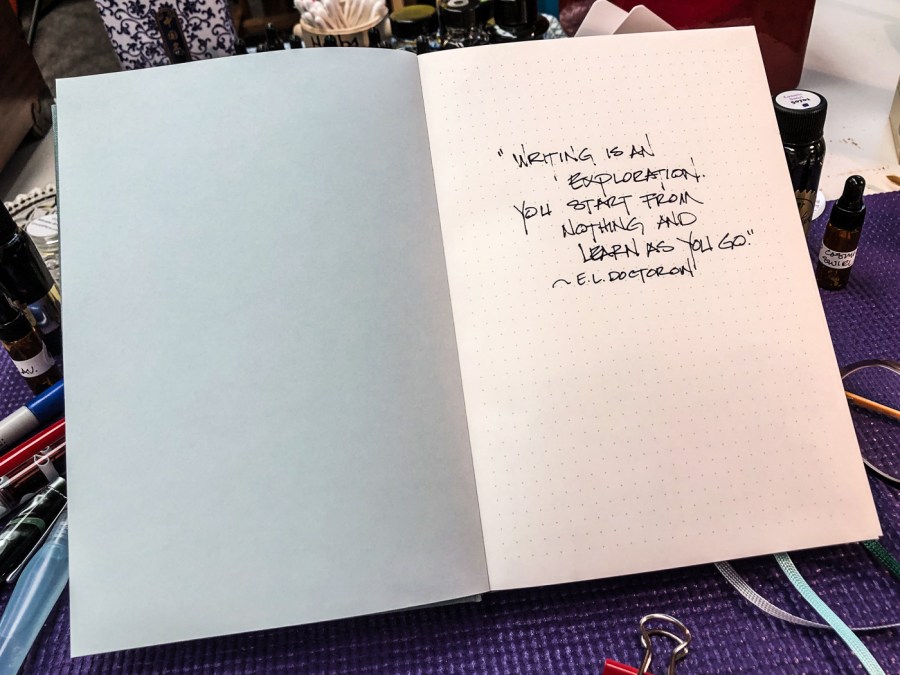 "WRITING IS AN
EXPLORATION.
YOU START FROM
NOTHING AND
LEARN AS YOU GO."
~E.L. DOCTOROW